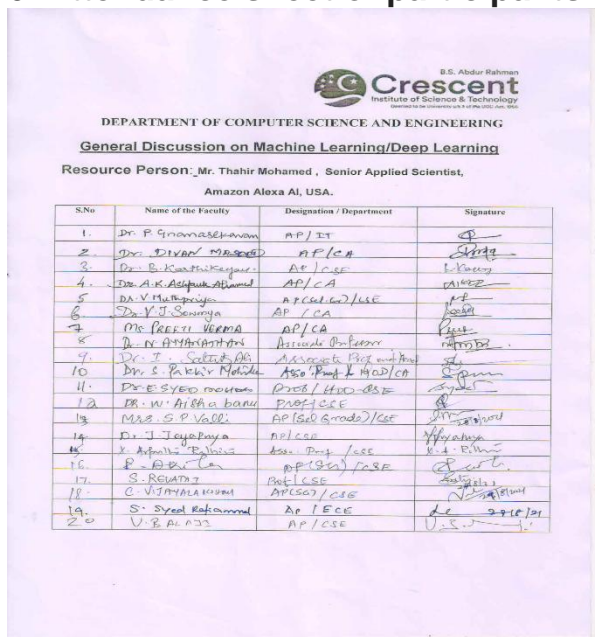 B.S. Abdur Rahman
Crescent
Institute of Science & Technology
DEPARTMENT OF COMPUTER SCIENCE AND ENGINEERING
General Discussion on Machine Learning/Deep Learning
Resource Person: Mr. Thahir Mohamed , Senior Applied Scientist,
Amazon Alexa AI, USA.
S.No Name of the Faculty Designation / Department Signature
1. Dr. P. Gnanasekaran AP / IT
2. Dr. DIVAN MASOOD AP/CA
3. Dr. B. Karthikeyan. AP / CSE
4. Dr. A.K. Ashfauk Ahamed AP/CA
5 Dr. V Muthupriya AP(Sel.Gr)/CSE
6 Dr. V.J. Sowmya AP / CA
7 Ms PREETI VERMA AP/CA
8 Dr. N Associate Professor
9. Dr. I. Associate Prof
10 Dr. S. Pakkir Mohideen Asso. Prof & HOD/CA
11. Dr E SYED Prof / HOD-CSE
12 DR. W. Aisha banu PROF/CSE
13 Mrs. S.P. Valli AP (Sel Grade)/CSE
14 Dr. J Jeyapriya AP/CSE
15 Asso. Prof / CSE
16. / CSE
17. S. REVATHI Prof / CSE
18. C. VIJAYALAKSHMI AP(SG) / CSE
19. S. Syed Rafiammal AP / ECE
20 V. BALAJI AP / CSE